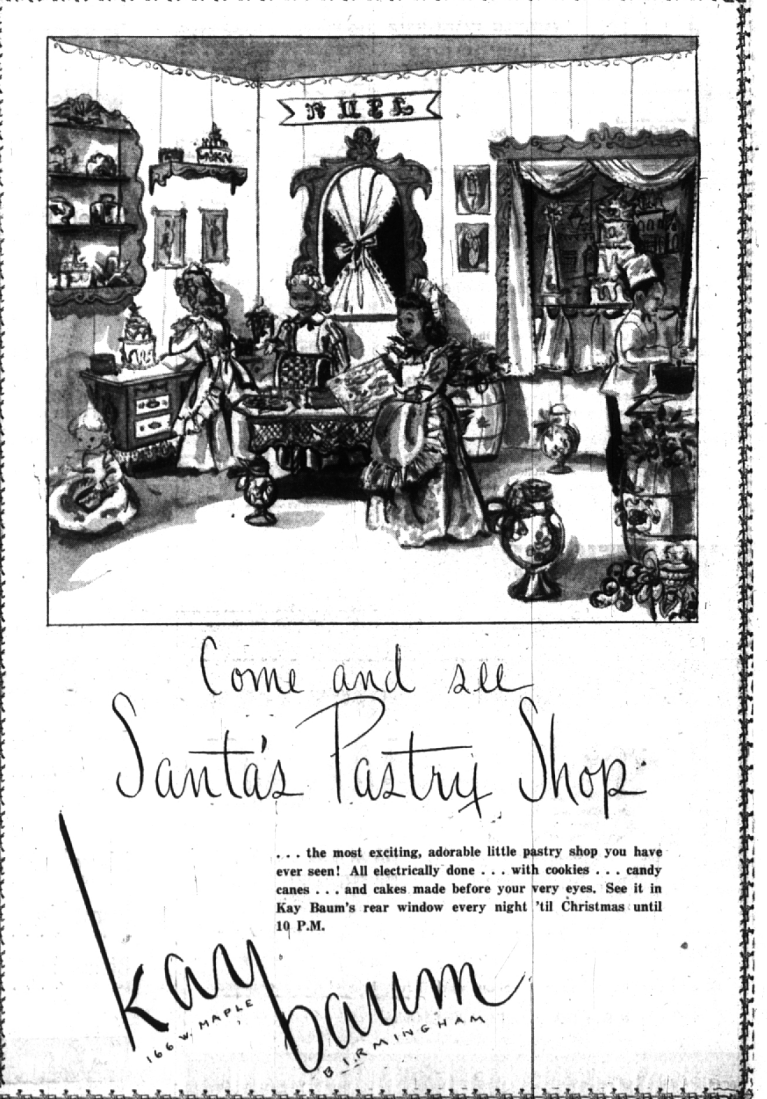 Come and see
Santa's Pastry Shop
. . . the most exciting, adorable little pastry shop you have
ever seen! All electrically done . . . with cookies . . . candy
canes . . . and cakes made before your very eyes. See it in
Kay Baum's rear window every night 'til Christmas until
10 P.M.
kay baum
166 W. MAPLE
BIRMINGHAM